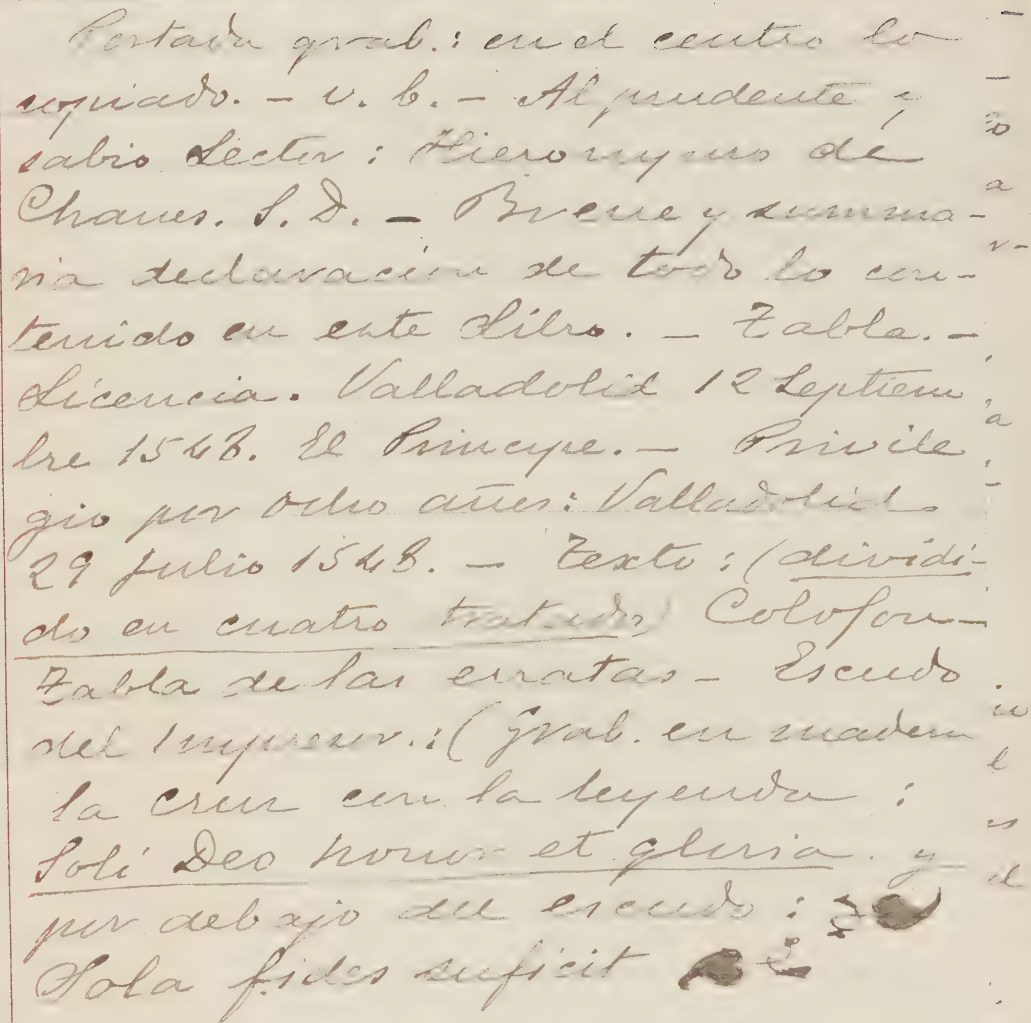 Portada grab.: en el centro lo
copiado. - v. b. - Al prudente y
sabio Lector : Hieronymo de
Chaues. S. D. - Breue y summa-
ria declaracion de todo lo con-
tenido en este Libro. - Tabla. -
Licencia. Valladolid 12 Septiem
bre 1548. El Principe. - Privile
gio por ocho años: Valladolid
29 Julio 1548. - Texto : (dividi-
do en cuatro tratados) Colofon -
Tabla de las erratas - Escudo
del Impresor.: (Grab. en madera
la cruz con la leyenda :
Soli Deo honor et gloria. y
por debajo del escudo :
Sola fides suficit